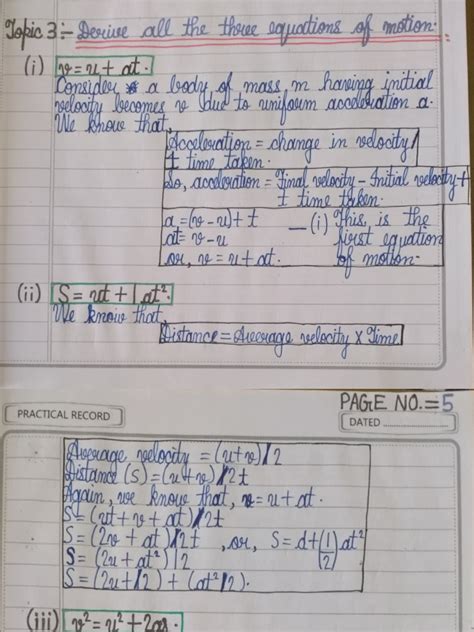 Topic 3:- Derive all the three equations of motion.
(i) v = u + at.
Consider a body of mass m having initial
velocity becomes v due to uniform acceleration a.
We know that,
Acceleration = change in velocity/
t time taken.
So, acceleration = Final velocity - Initial velocity ÷
t time taken.
a = (v - u) ÷ t — (i) This is the
at = v - u first equation
or, v = u + at. of motion.
(ii) S = ut + 1 at².
We know that,
Distance = Average velocity X Time
PAGE NO.=5
PRACTICAL RECORD
DATED
Average velocity = (u+v)/2
Distance (S) = (u+v)/2t
Again, we know that, v = u + at.
S = (ut + v + at)/2t
S = (2v + at)/2t , or, S = d+(1/2)at²
S = (2u + at²)/2
S = (2u+/2) + (at²/2).
(iii) v² = u² + 2as.